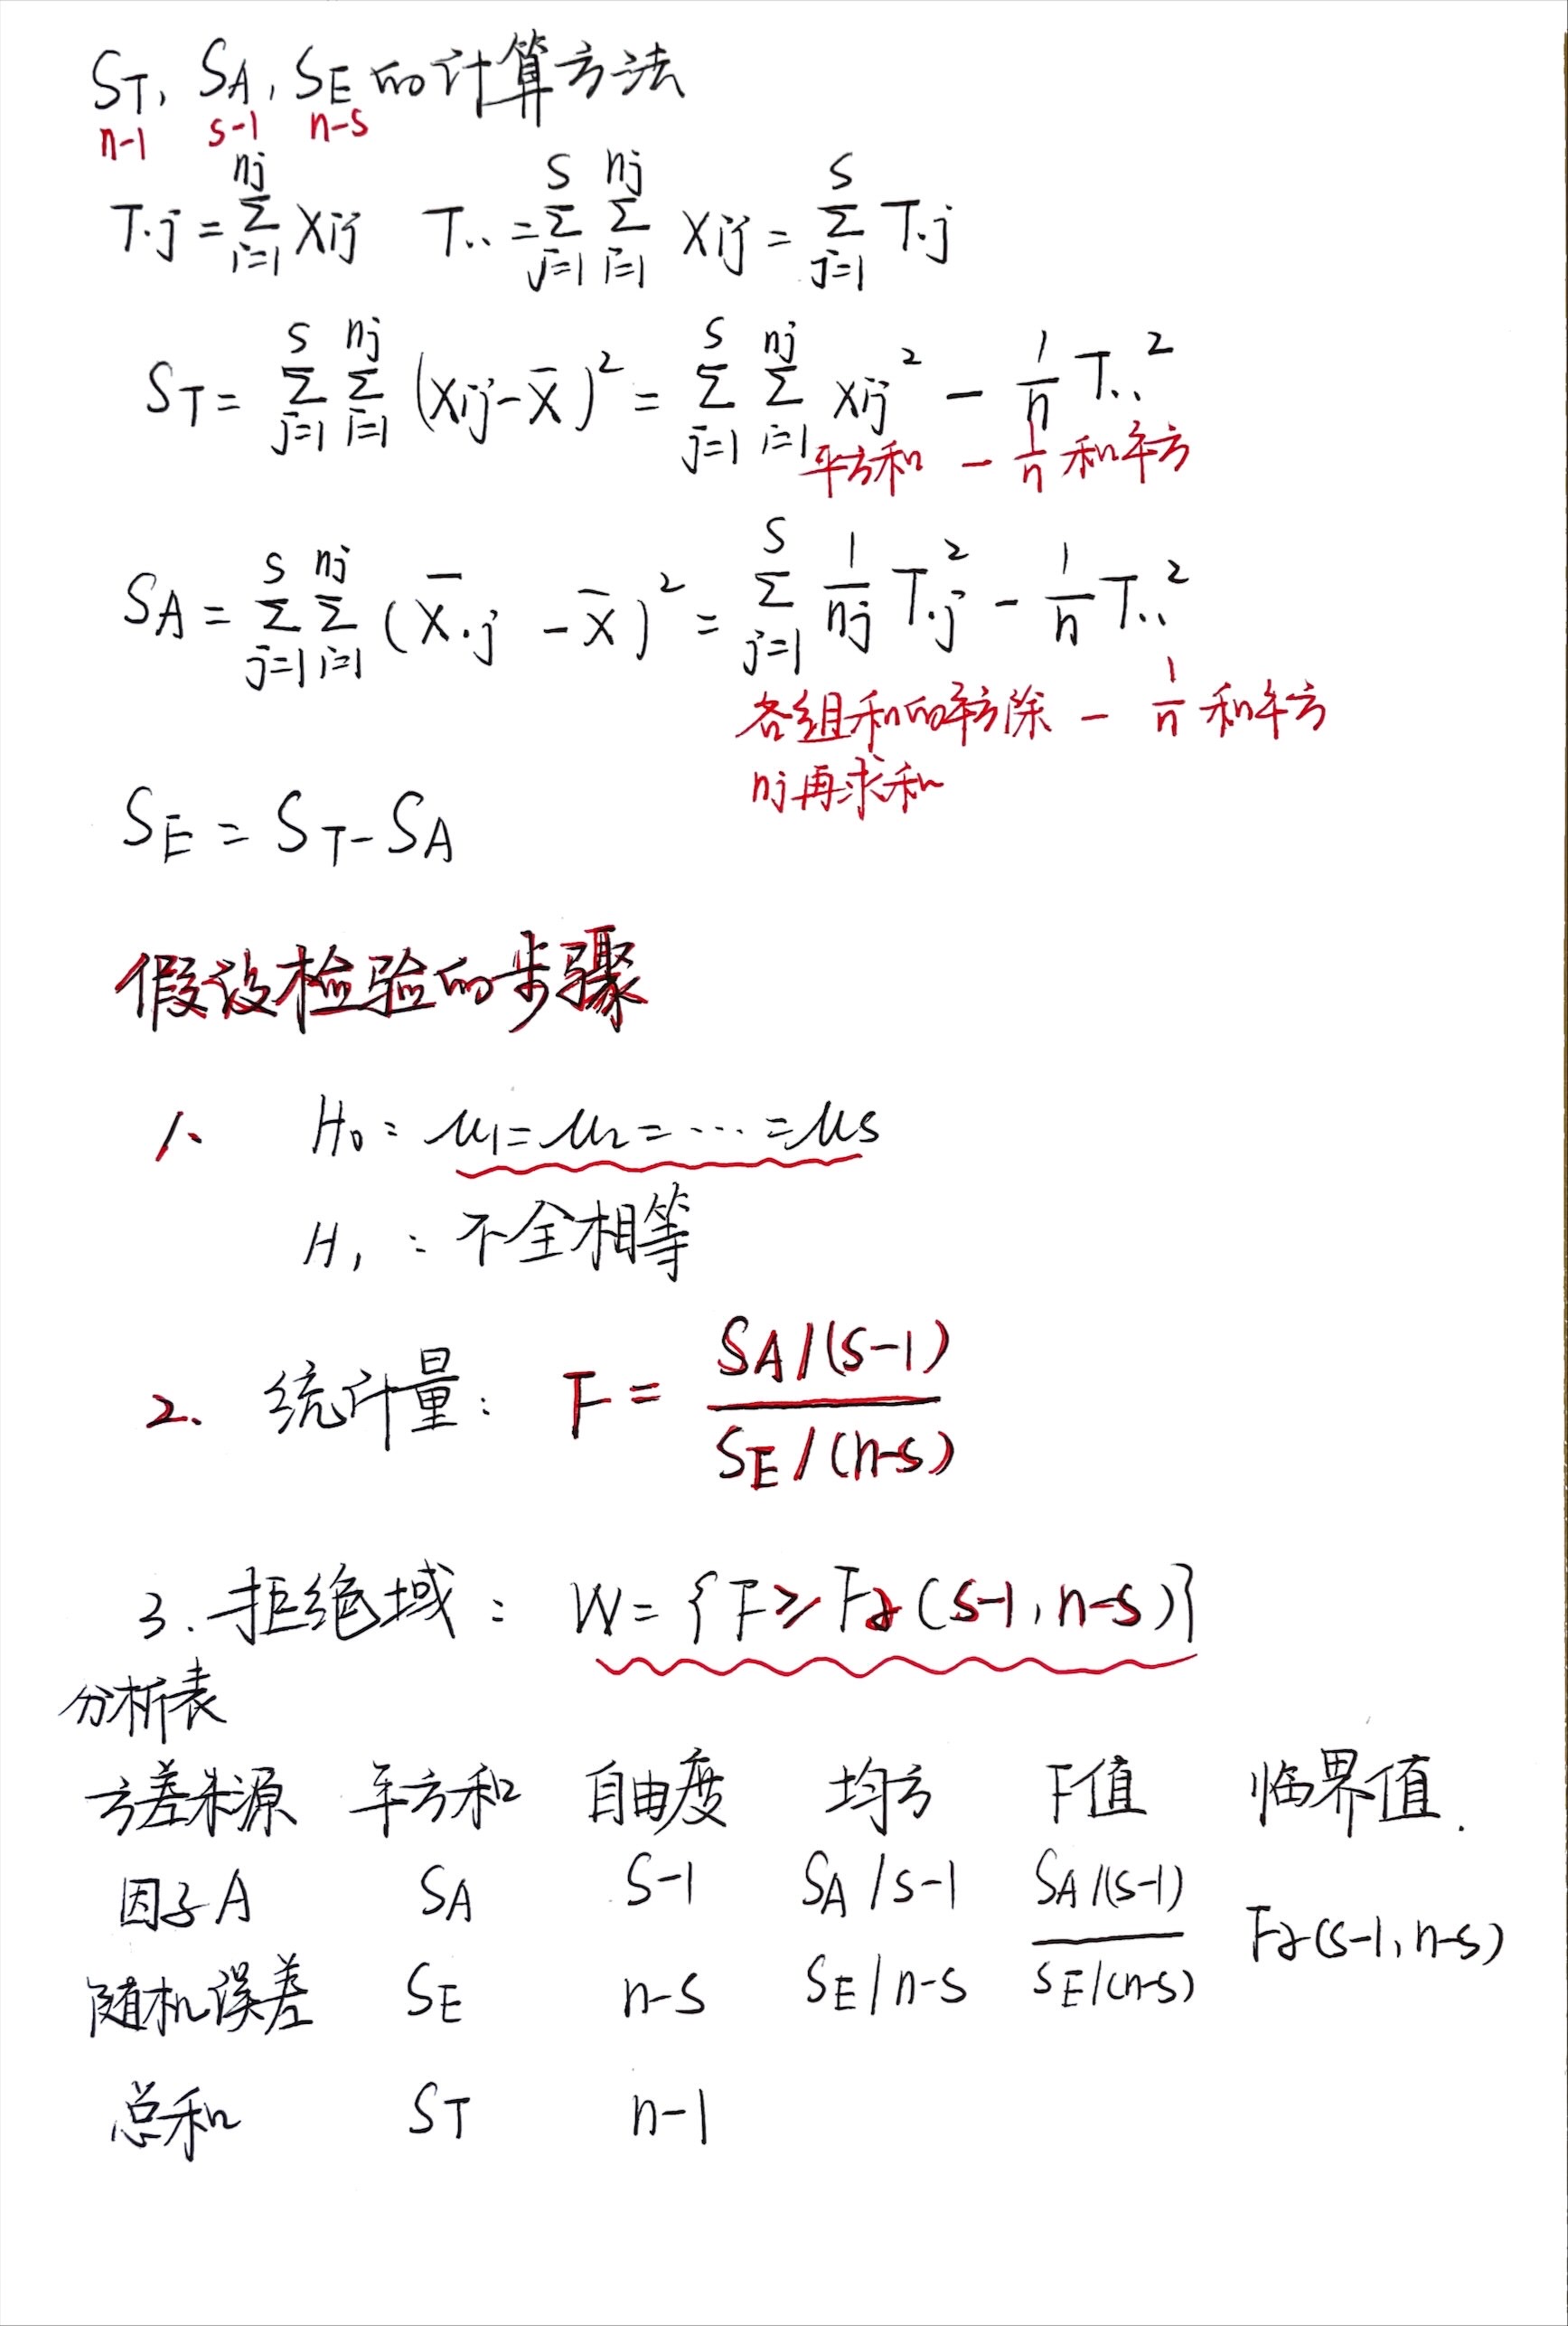 S_T, S_A, S_E 的计算方法
n-1 s-1 n-s
T.j = \sum_{i=1}^{nj} Xij T.. = \sum_{j=1}^{S} \sum_{i=1}^{nj} Xij = \sum_{j=1}^{S} T.j
S_T = \sum_{j=1}^{S} \sum_{i=1}^{nj} (Xij - \bar{X})^2 = \sum_{j=1}^{S} \sum_{i=1}^{nj} Xij^2 - \frac{1}{n} T..^2
平方和 - \frac{1}{n} 和平方
S_A = \sum_{j=1}^{S} \sum_{i=1}^{nj} (\bar{X}.j - \bar{X})^2 = \sum_{j=1}^{S} \frac{1}{nj} T.j^2 - \frac{1}{n} T..^2
各组和的平方除 - \frac{1}{n} 和平方
nj再求和
S_E = S_T - S_A
假设检验的步骤
1、 H_0: μ_1=μ_2=…=μ_s
H_1: 不全相等
2、 统计量: F = \frac{S_A/(s-1)}{S_E/(n-s)}
3. 拒绝域: W={F≥F_α(s-1, n-s)}
分析表
方差来源 平方和 自由度 均方 F值 临界值.
因子A S_A S-1 S_A/s-1 \frac{S_A/(s-1)}{S_E/(n-s)} F_α(s-1, n-s)
随机误差 S_E n-s S_E/n-s
总和 S_T n-1